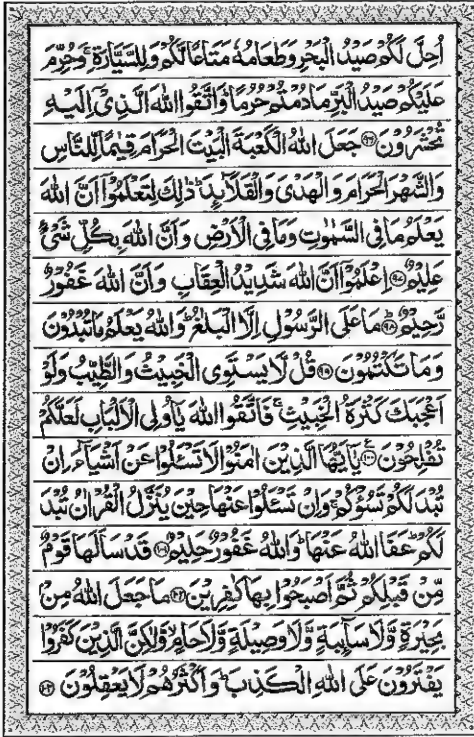 اُحِلَّ لَكُمْ صَيْدُ الْبَحْرِ وَطَعَامُهٗ مَتَاعًا لَّكُمْ وَلِلسَّيَّارَةِ ۚ وَحُرِّمَ
عَلَيْكُمْ صَيْدُ الْبَرِّ مَا دُمْتُمْ حُرُمًا ؕ وَاتَّقُوا اللّٰهَ الَّذِیْۤ اِلَيْهِ
تُحْشَرُوْنَ ﴿۹۶﴾ جَعَلَ اللّٰهُ الْكَعْبَةَ الْبَيْتَ الْحَرَامَ قِيٰمًا لِّلنَّاسِ
وَالشَّهْرَ الْحَرَامَ وَالْهَدْیَ وَالْقَلَآئِدَ ؕ ذٰلِكَ لِتَعْلَمُوْۤا اَنَّ اللّٰهَ
يَعْلَمُ مَا فِی السَّمٰوٰتِ وَمَا فِی الْاَرْضِ وَاَنَّ اللّٰهَ بِكُلِّ شَیْءٍ
عَلِيْمٌ ﴿۹۷﴾ اِعْلَمُوْۤا اَنَّ اللّٰهَ شَدِيْدُ الْعِقَابِ وَاَنَّ اللّٰهَ غَفُوْرٌ
رَّحِيْمٌ ﴿۹۸﴾ مَا عَلَی الرَّسُوْلِ اِلَّا الْبَلٰغُ ؕ وَاللّٰهُ يَعْلَمُ مَا تُبْدُوْنَ
وَمَا تَكْتُمُوْنَ ﴿۹۹﴾ قُلْ لَّا يَسْتَوِی الْخَبِيْثُ وَالطَّيِّبُ وَلَوْ
اَعْجَبَكَ كَثْرَةُ الْخَبِيْثِ ۚ فَاتَّقُوا اللّٰهَ يٰۤاُولِی الْاَلْبَابِ لَعَلَّكُمْ
تُفْلِحُوْنَ ﴿۱۰۰﴾ يٰۤاَيُّهَا الَّذِيْنَ اٰمَنُوْا لَا تَسْئَلُوْا عَنْ اَشْيَآءَ اِنْ
تُبْدَ لَكُمْ تَسُؤْكُمْ ۚ وَاِنْ تَسْئَلُوْا عَنْهَا حِيْنَ يُنَزَّلُ الْقُرْاٰنُ تُبْدَ
لَكُمْ ؕ عَفَا اللّٰهُ عَنْهَا ؕ وَاللّٰهُ غَفُوْرٌ حَلِيْمٌ ﴿۱۰۱﴾ قَدْ سَاَلَهَا قَوْمٌ
مِّنْ قَبْلِكُمْ ثُمَّ اَصْبَحُوْا بِهَا كٰفِرِيْنَ ﴿۱۰۲﴾ مَا جَعَلَ اللّٰهُ مِنْۢ
بَحِيْرَةٍ وَّلَا سَآئِبَةٍ وَّلَا وَصِيْلَةٍ وَّلَا حَامٍ ۙ وَّلٰكِنَّ الَّذِيْنَ كَفَرُوْا
يَفْتَرُوْنَ عَلَی اللّٰهِ الْكَذِبَ ؕ وَاَكْثَرُهُمْ لَا يَعْقِلُوْنَ ﴿۱۰۳﴾